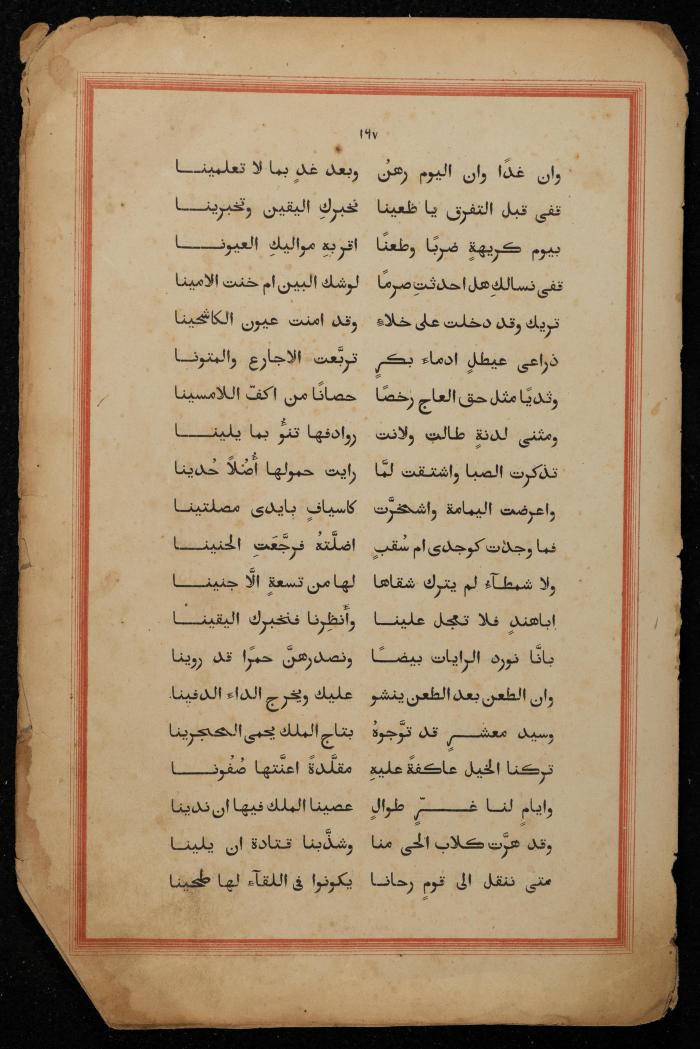 ١٦٧
وان غدًا وان اليوم رهنُ وبعد غدٍ بما لا تعلمينــا
قفى قبل التفرق يا ظعينا نخبركِ اليقين وتخبرينــا
بيوم كريهةٍ ضربًا وطعنًا اقر بهِ مواليكِ العيونــا
قفى نسالكِ هل احدثتِ صرمًا لوشك البين ام خنت الامينا
تريك وقد دخلت على خلاءٍ وقد امنت عيون الكاشحينا
ذراعى عيطلٍ ادماء بكرٍ تربَّعت الاجارع والمتونــا
وثديًا مثل حق العاج رخصًا حصانًا من اكفّ اللامسينا
ومثنى لدنةٍ طالت ولانت روادفها تنؤُ بما يلينــا
تذكرت الصبا واشتقت لمَّا رايت حمولها أُصُلاً حُدينا
واعرضت اليمامة واشمخرَّت كاسيافٍ بايدى مصلتينا
فما وجدت كوجدى ام سُقبٍ اضلَّتهُ فرجَّعَتِ الحنينــا
ولا شمطآء لم يترك شقاها لها من تسعةٍ الَّا جنينــا
اباهندٍ فلا تعجل علينــا وأَنظِرنا فنخبرك اليقينــا
بانَّا نورد الرايات بيضــًا ونصدرهنَّ حمرًا قد روينا
وان الطعن بعد الطعن ينشو عليك ويخرج الداء الدفينا
وسيد معشــرٍ قد توَّجوهُ بتاج الملك يحمى المحجرينا
تركنا الخيل عاكفةً عليهِ مقلَّدةً اعنَّتها صُفُونــا
وايامٍ لنــا غــرٍّ طوالٍ عصينا الملك فيها ان ندينا
وقد هرَّت كلاب الحى منا وشذَّبنا قتادة ان يلينــا
متى ننقل الى قومٍ رحانــا يكونوا فى اللقآء لها طحينا